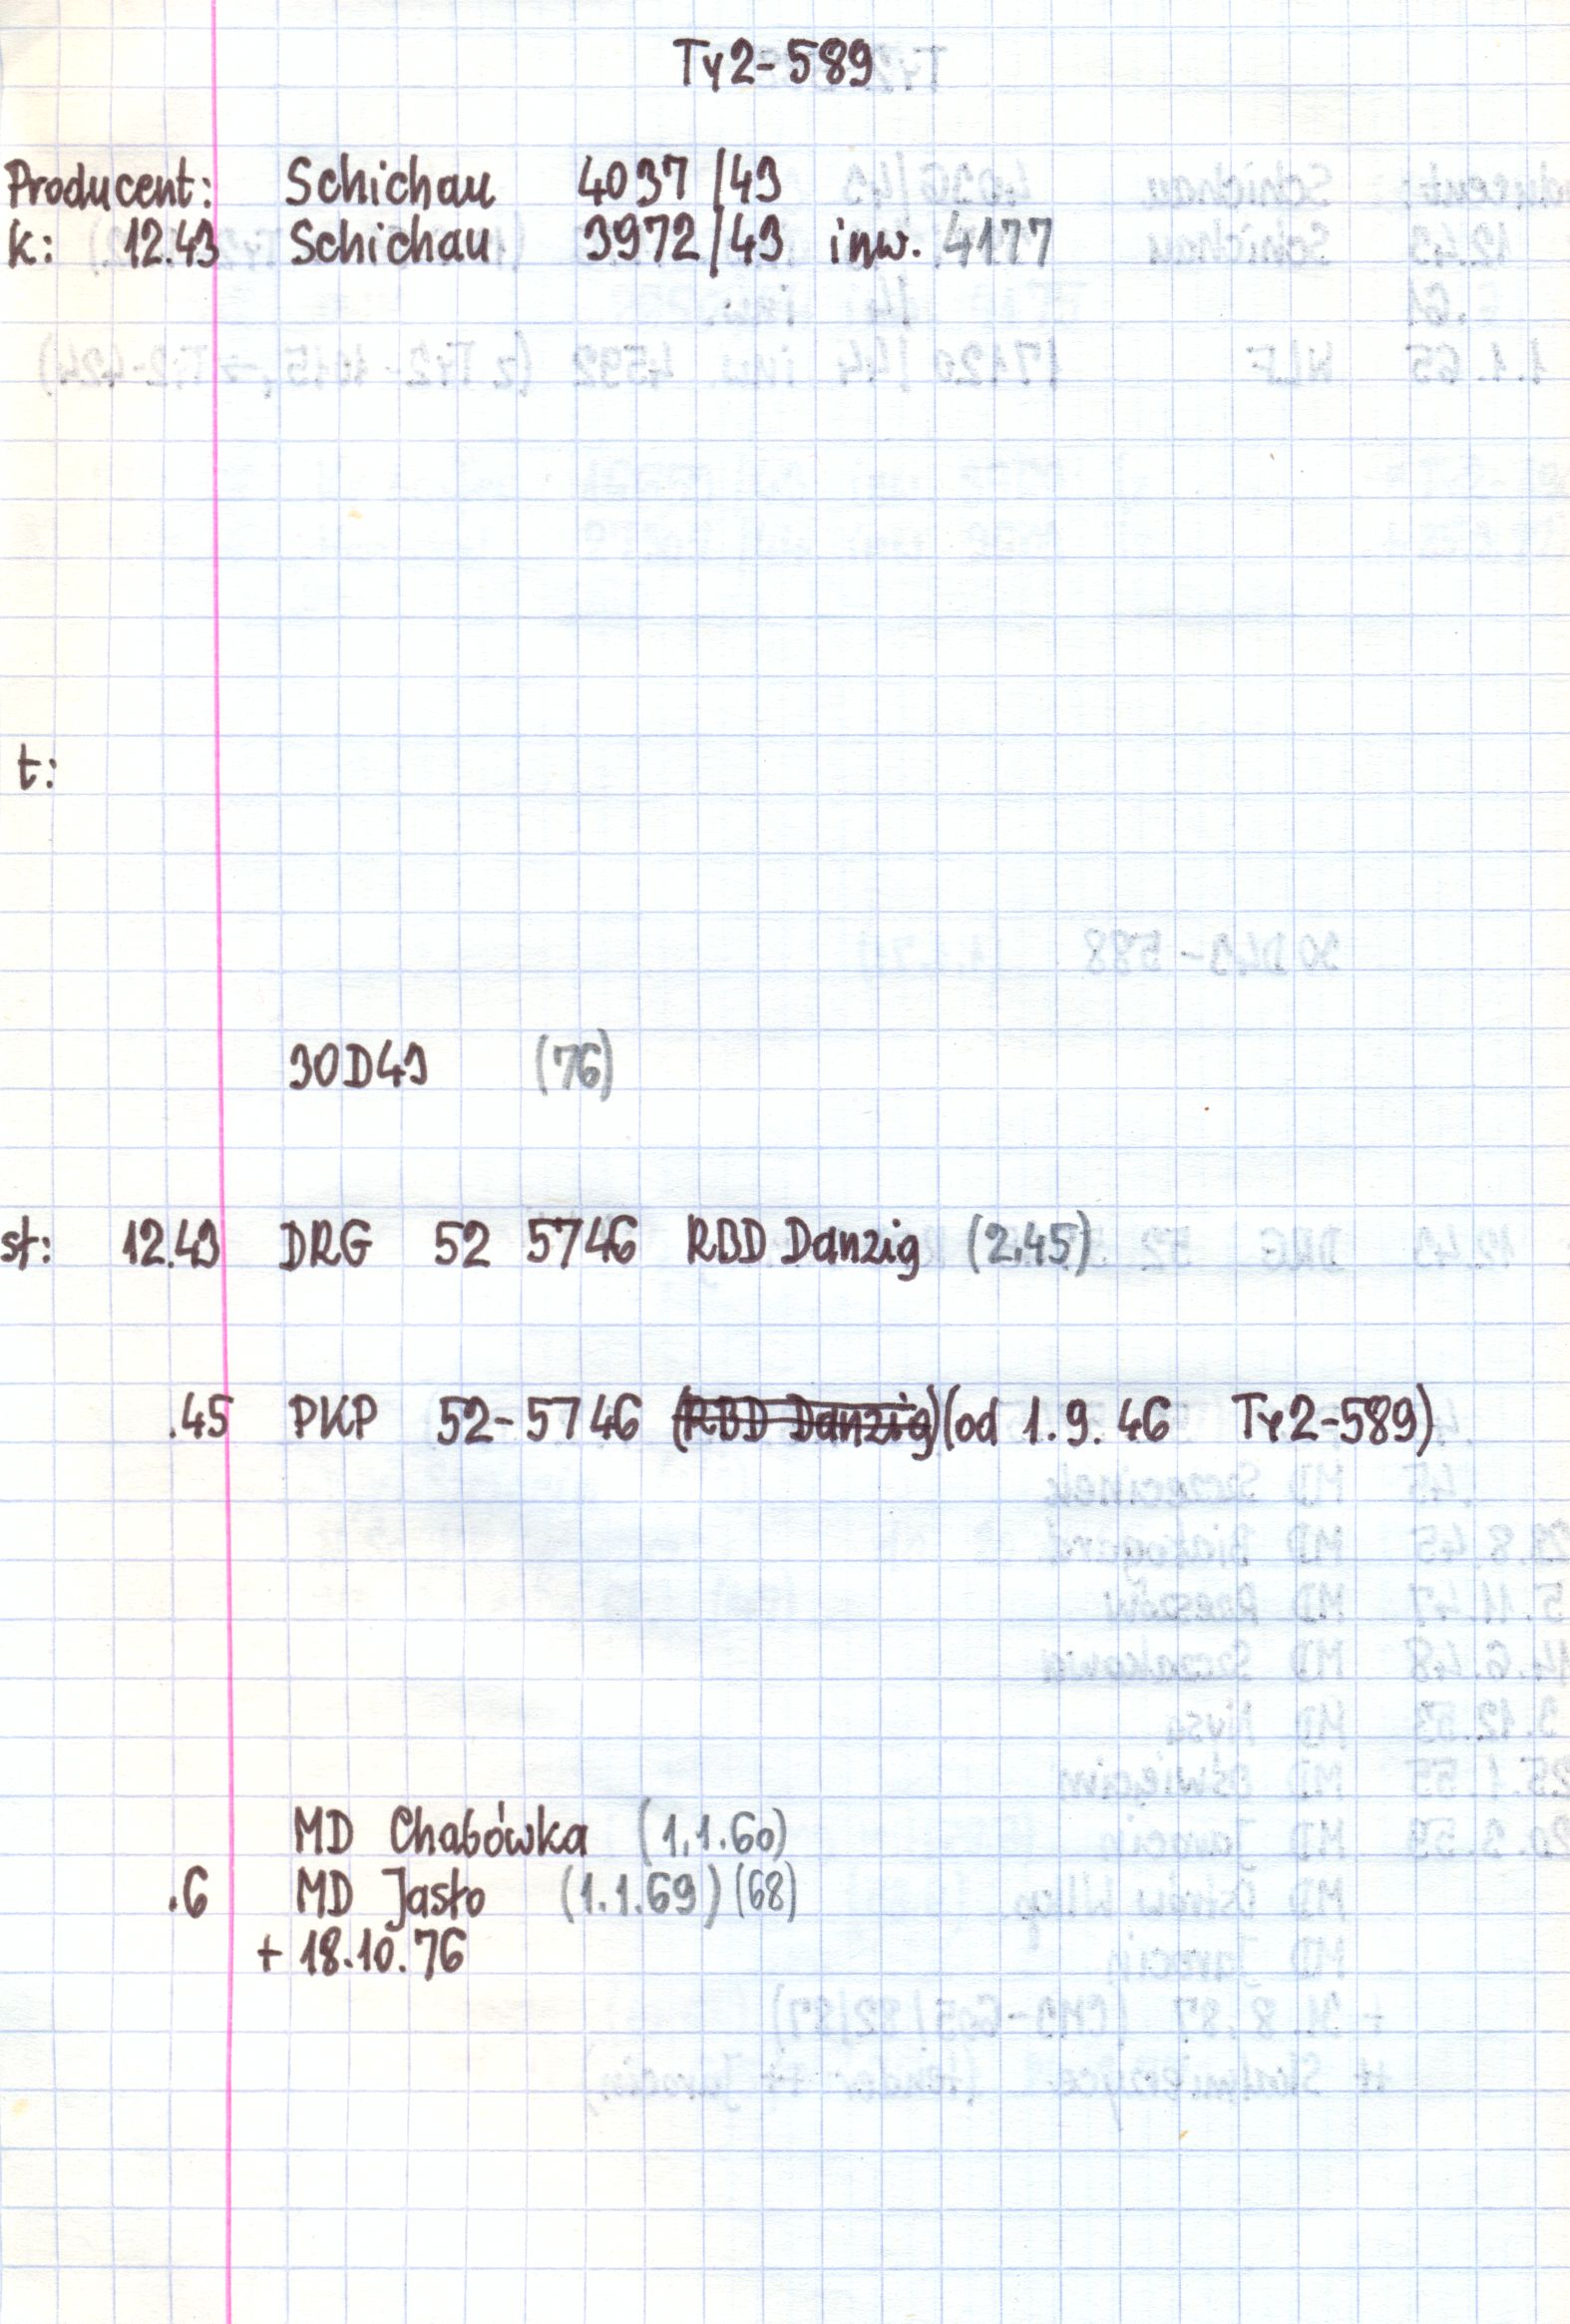 Ty2-589
Producent: Schichau 4037/43
k: 12.43 Schichau 3972/43 inw. 4177
t:
30D43 (76)
st: 12.43 DRG 52 5746 RBD Danzig (2.45)
.45 PKP 52-5746 (RBD Danzig) (od 1.9.46 Ty2-589)
MD Chabówka (1.1.60)
.6 MD Jasło (1.1.69) (68)
+ 18.10.76